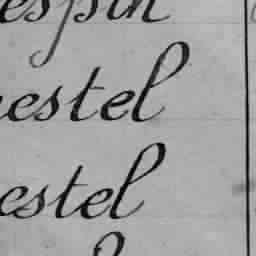 espin
estel
estel